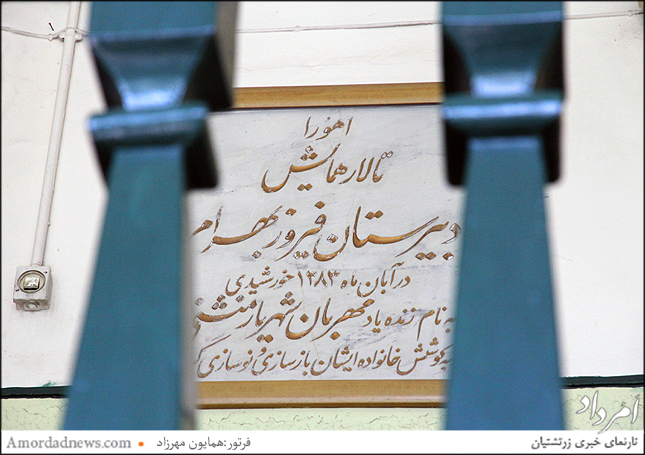 اهورا
تالار همایش
دبیرستان فیروز بهرام
در آبان ماه ۱۳۸۳ خورشیدی
به نام زنده یاد مهربان شهریار
به کوشش خانواده ایشان بازسازی و نوسازی
امرداد
تارنمای خبری زرتشتیان
فرتور:همایون مهرزاد
Amordadnews.com